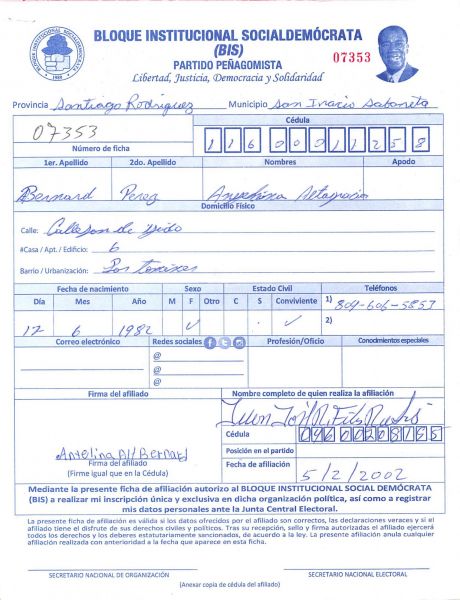 BLOQUE INSTITUCIONAL SOCIALDEMÓCRATA
(BIS)
07353
PARTIDO PEÑAGOMISTA
Libertad, Justicia, Democracia y Solidaridad
Provincia Santiago Rodriguez Municipio San Inacio Sabaneta
07353
Número de ficha
Cédula
1er. Apellido 2do. Apellido Nombres Apodo
Bernard Perez Altagracia
Domicilio Físico
Calle: Callejon de
#Casa / Apt. / Edificio: 6
Barrio / Urbanización: Los
Fecha de nacimiento Sexo Estado Civil Teléfonos
Día Mes Año M F Otro C S Conviviente 1) 809-606-5853
12 6 1982 ✓ ✓ 2)
Correo electrónico Redes sociales Profesión/Oficio Conocimientos especiales
@
@
@
Firma del afiliado Nombre completo de quien realiza la afiliación
Cédula
Bernard
Posición en el partido
Firma del afiliado
(Firme igual que en la Cédula)
Fecha de afiliación 5/2/2002
Mediante la presente ficha de afiliación autorizo al BLOQUE INSTITUCIONAL SOCIAL DEMÓCRATA
(BIS) a realizar mi inscripción única y exclusiva en dicha organización política, así como a registrar
mis datos personales ante la Junta Central Electoral.
La presente ficha de afiliación es válida si los datos ofrecidos por el afiliado son correctos, las declaraciones veraces y si el
afiliado tiene el disfrute de sus derechos civiles y políticos. Tras su recepción, sello y firma autorizadas el afiliado ejercerá
todos los derechos y los deberes estatutariamente sancionados, de acuerdo a la ley. La presente afiliación anula cualquier
afiliación realizada con anterioridad a la fecha que aparece en esta ficha.
SECRETARIO NACIONAL DE ORGANIZACIÓN SECRETARIO NACIONAL ELECTORAL
(Anexar copia de cédula del afiliado)